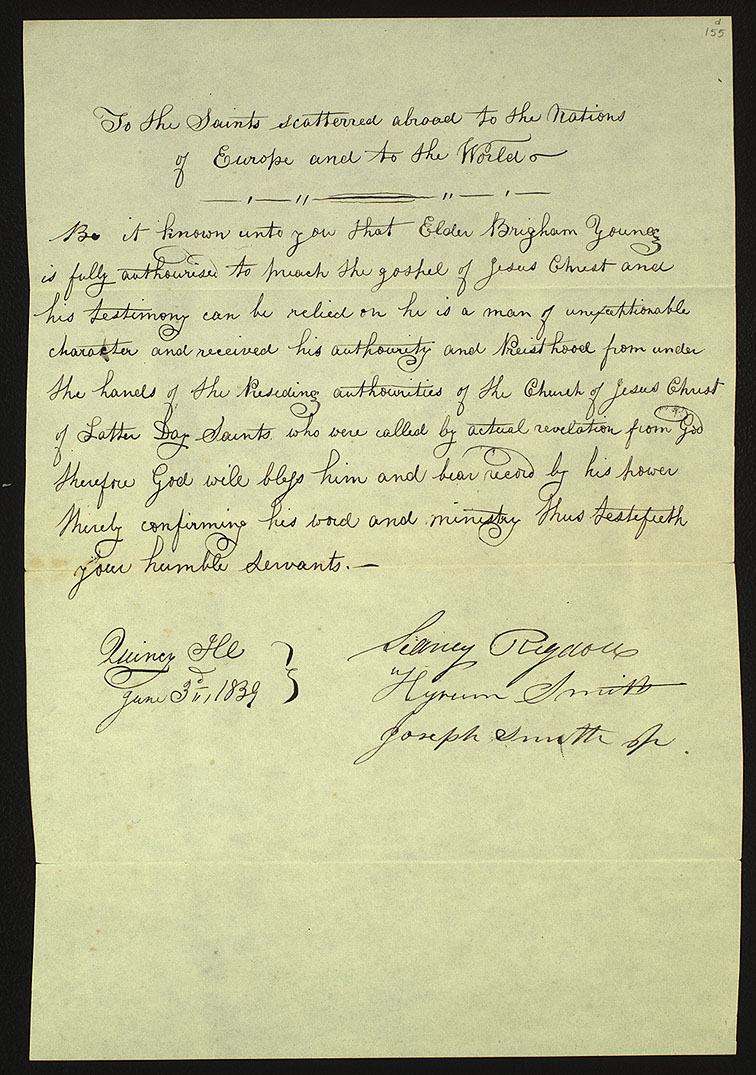 d
155
To the Saints scatterred abroad to the Nations
of Europe and to the World
Be it known unto you that Elder Brigham Young
is fully authourised to preach the gospel of Jesus Christ and
his testimony can be relied on he is a man of unexceptionable
character and received his authourity and Preisthood from under
the hands of the Presiding authourities of the Church of Jesus Christ
of Latter Day Saints who were called by actual revelation from God
therefore God will bless him and bear record by his power
thereby confirming his word and ministry Thus testifieth
your humble servants.—
Quincy Ill
June 3d, 1839
Sidney Rigdon
Hyrum Smith
Joseph Smith Jr.